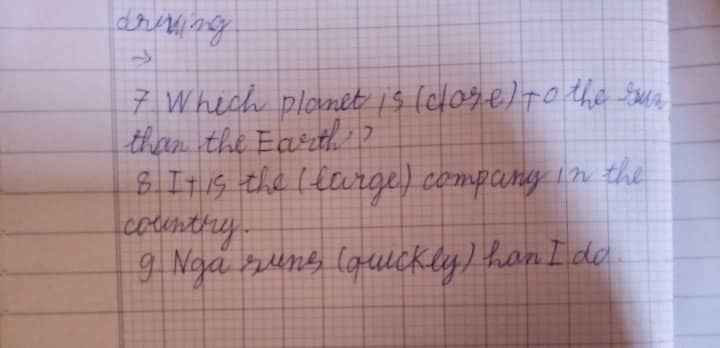 driving
→
7 Which planet is (close) to the sun
than the Earth ?
8. It is the (large) company in the
country.
9. Nga runs (quickly) han I do.